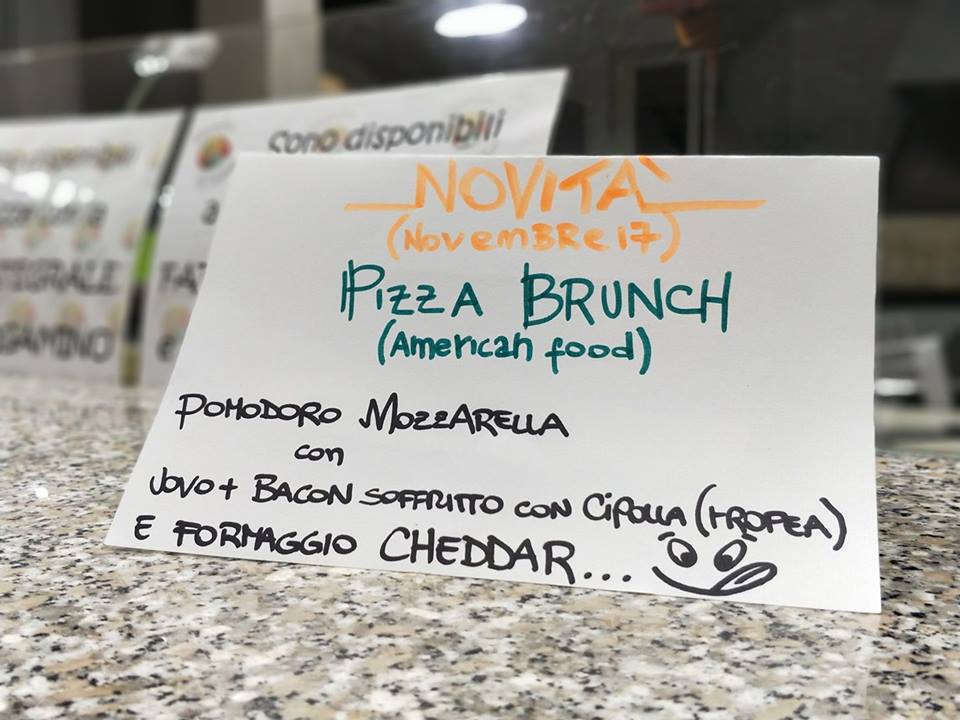 sono disponibili
INTEGRALE
NOVITÀ
(NovemBRe 17)
PIZZA BRUNCH
(American food)
POMODORO MOZZARELLA
con
UOVO + BACON SOFFRITTO CON CIPOLLA (TROPEA)
E FORMAGGIO CHEDDAR...